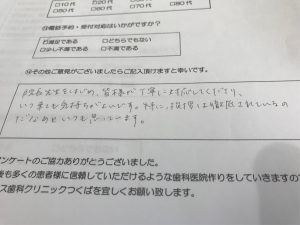 □10代 □20代
□60代 □70代 □80代
⑬電話予約・受付対応はいかがですか？
☑満足である □どちらでもない
□少し不満である □不満である
⑭その他ご意見がございましたらご記入頂けますと幸いです。
院長先生をはじめ、皆様が丁寧に対応してくださり、
いつ来ても気持ちがよいです。特に、挨拶は徹底されているの
だなあといつも思っています。
ンケートのご協力ありがとうございました。
後も多くの患者様に信頼していただけるような歯科医院作りをしていきますので
ス歯科クリニックつくばを宜しくお願い致します。